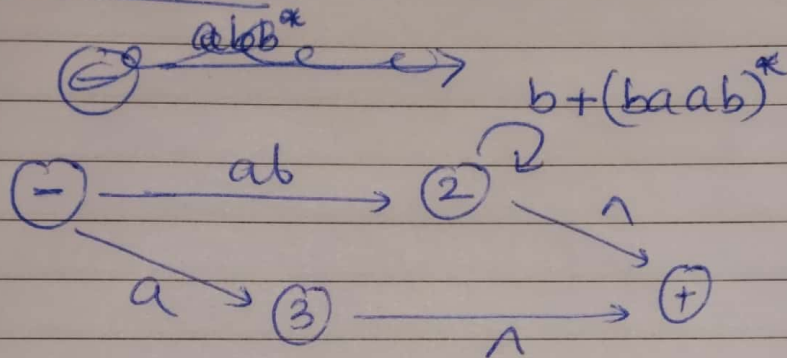 abb*
b+(baab)*
- ab 2 ^
a 3 ^ +